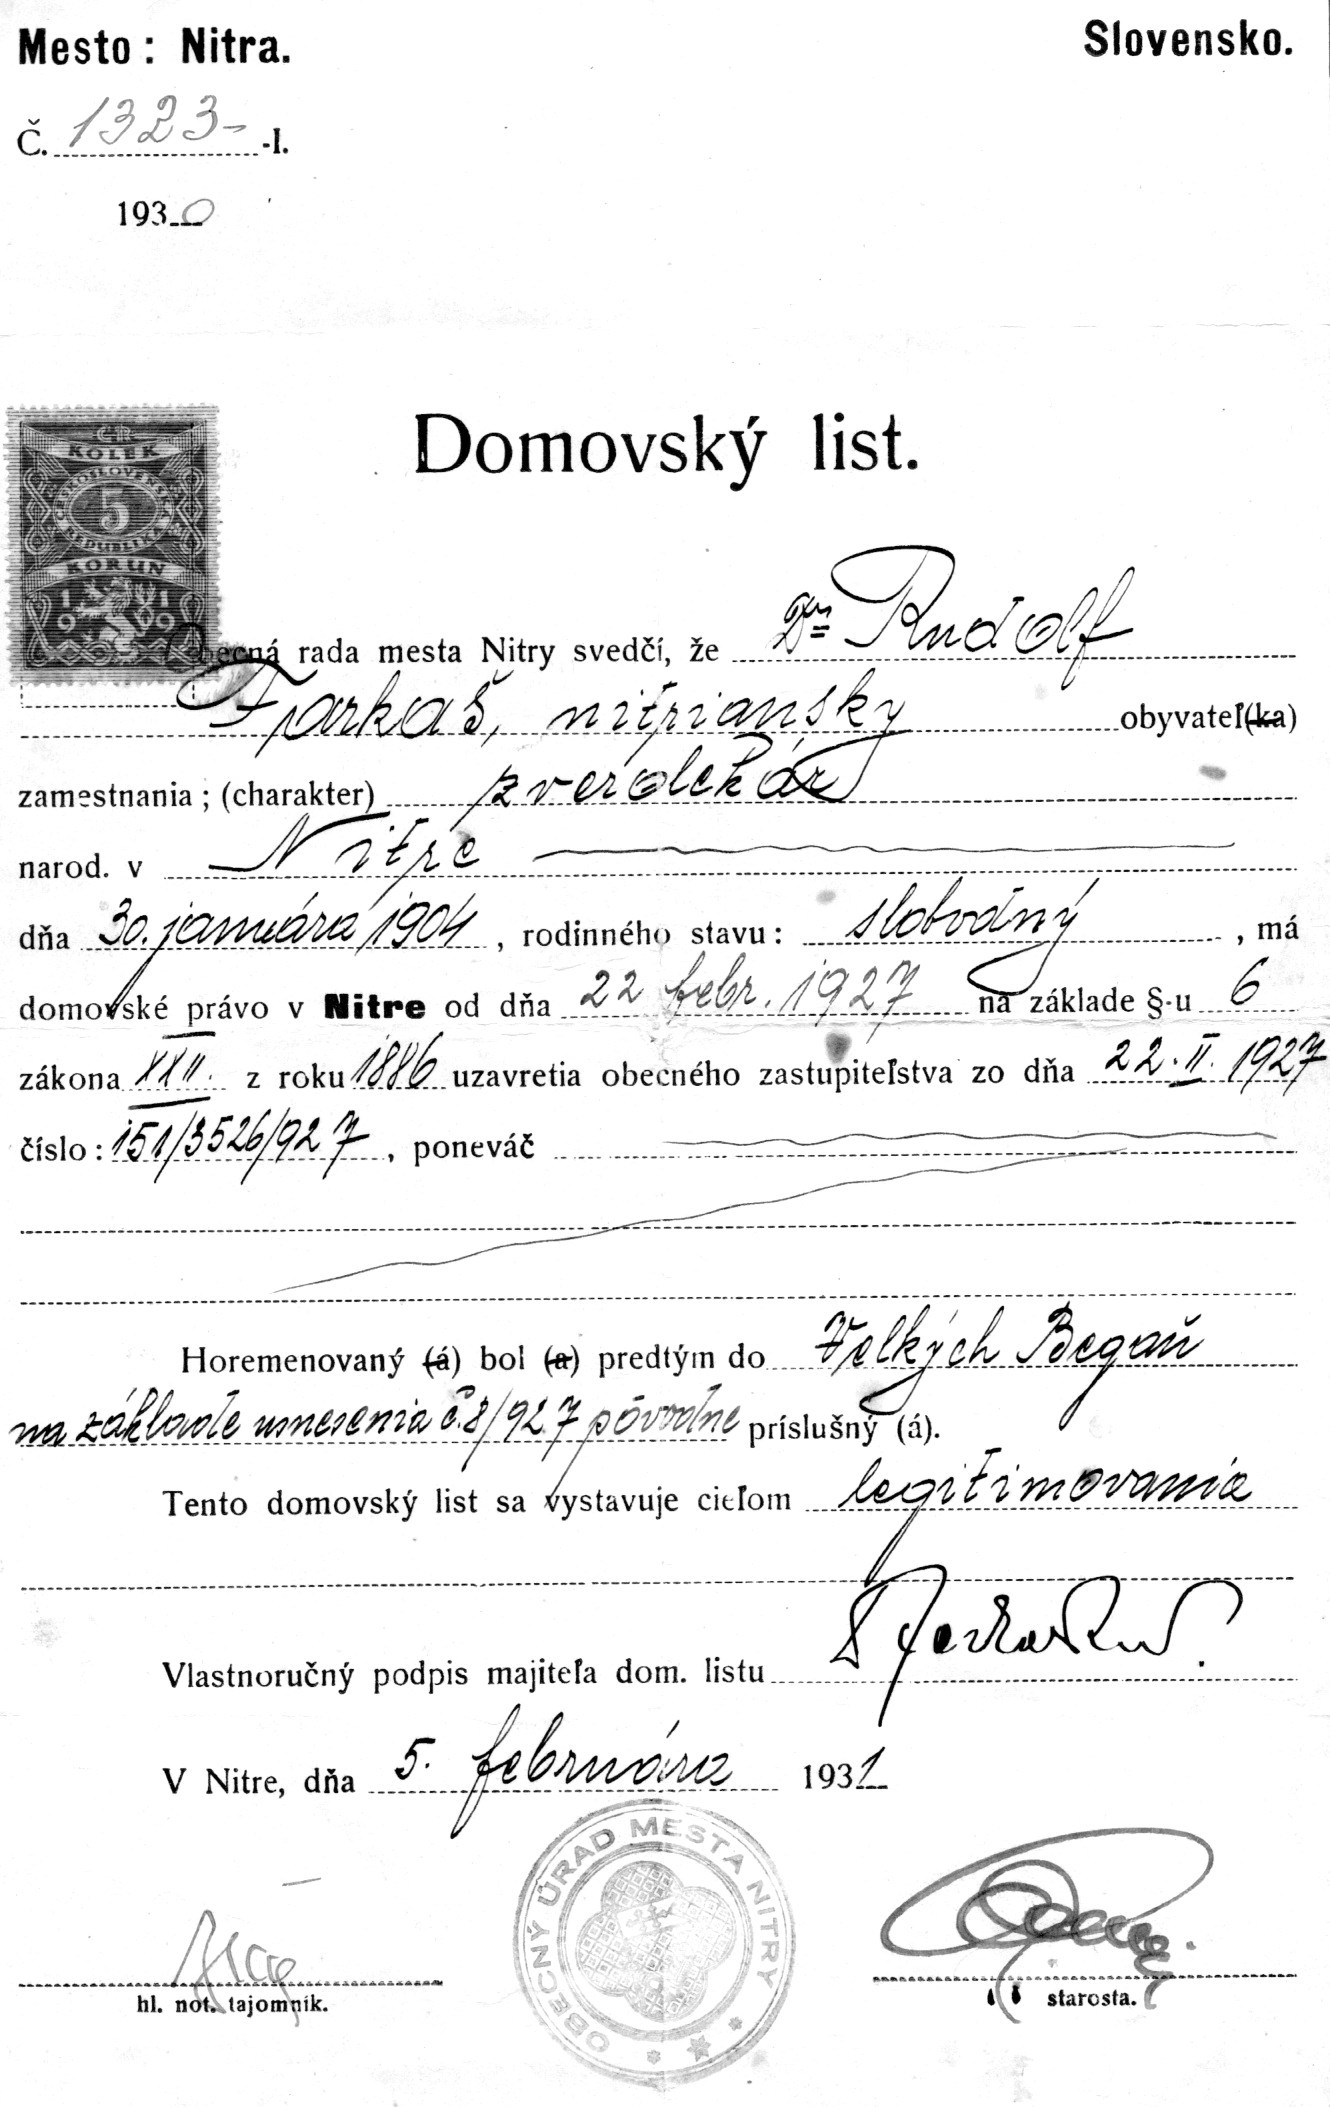 Mesto: Nitra.
Slovensko.
Č. 1323- -I.
1930
Domovský list.
ČR
KOLEK
ČESKOSLOVENSKÁ
5
REPUBLIKA
KORUN
1919
Obecná rada mesta Nitry svedčí, že Dr Rudolf
Farkaš, nitriansky obyvateľ(ka)
zamestnania; (charakter) zverolekár
narod. v Nitre
dňa 30. januára 1904, rodinného stavu: slobodný, má
domovské právo v Nitre od dňa 22 febr. 1927 na základe §-u 6
zákona XXII. z roku 1886 uzavretia obecného zastupiteľstva zo dňa 22. II. 1927
číslo: 151/3526/927, poneváč
Horemenovaný (á) bol (a) predtým do Velkých Begaň
na základe usnesenia č. 8/927 pôvodne príslušný (á).
Tento domovský list sa vystavuje cieľom legitimovania
Vlastnoručný podpis majiteľa dom. listu
V Nitre, dňa 5. februára 1931
OBECNÝ ÚRAD MESTA NITRY
hl. not. tajomník.
starosta.